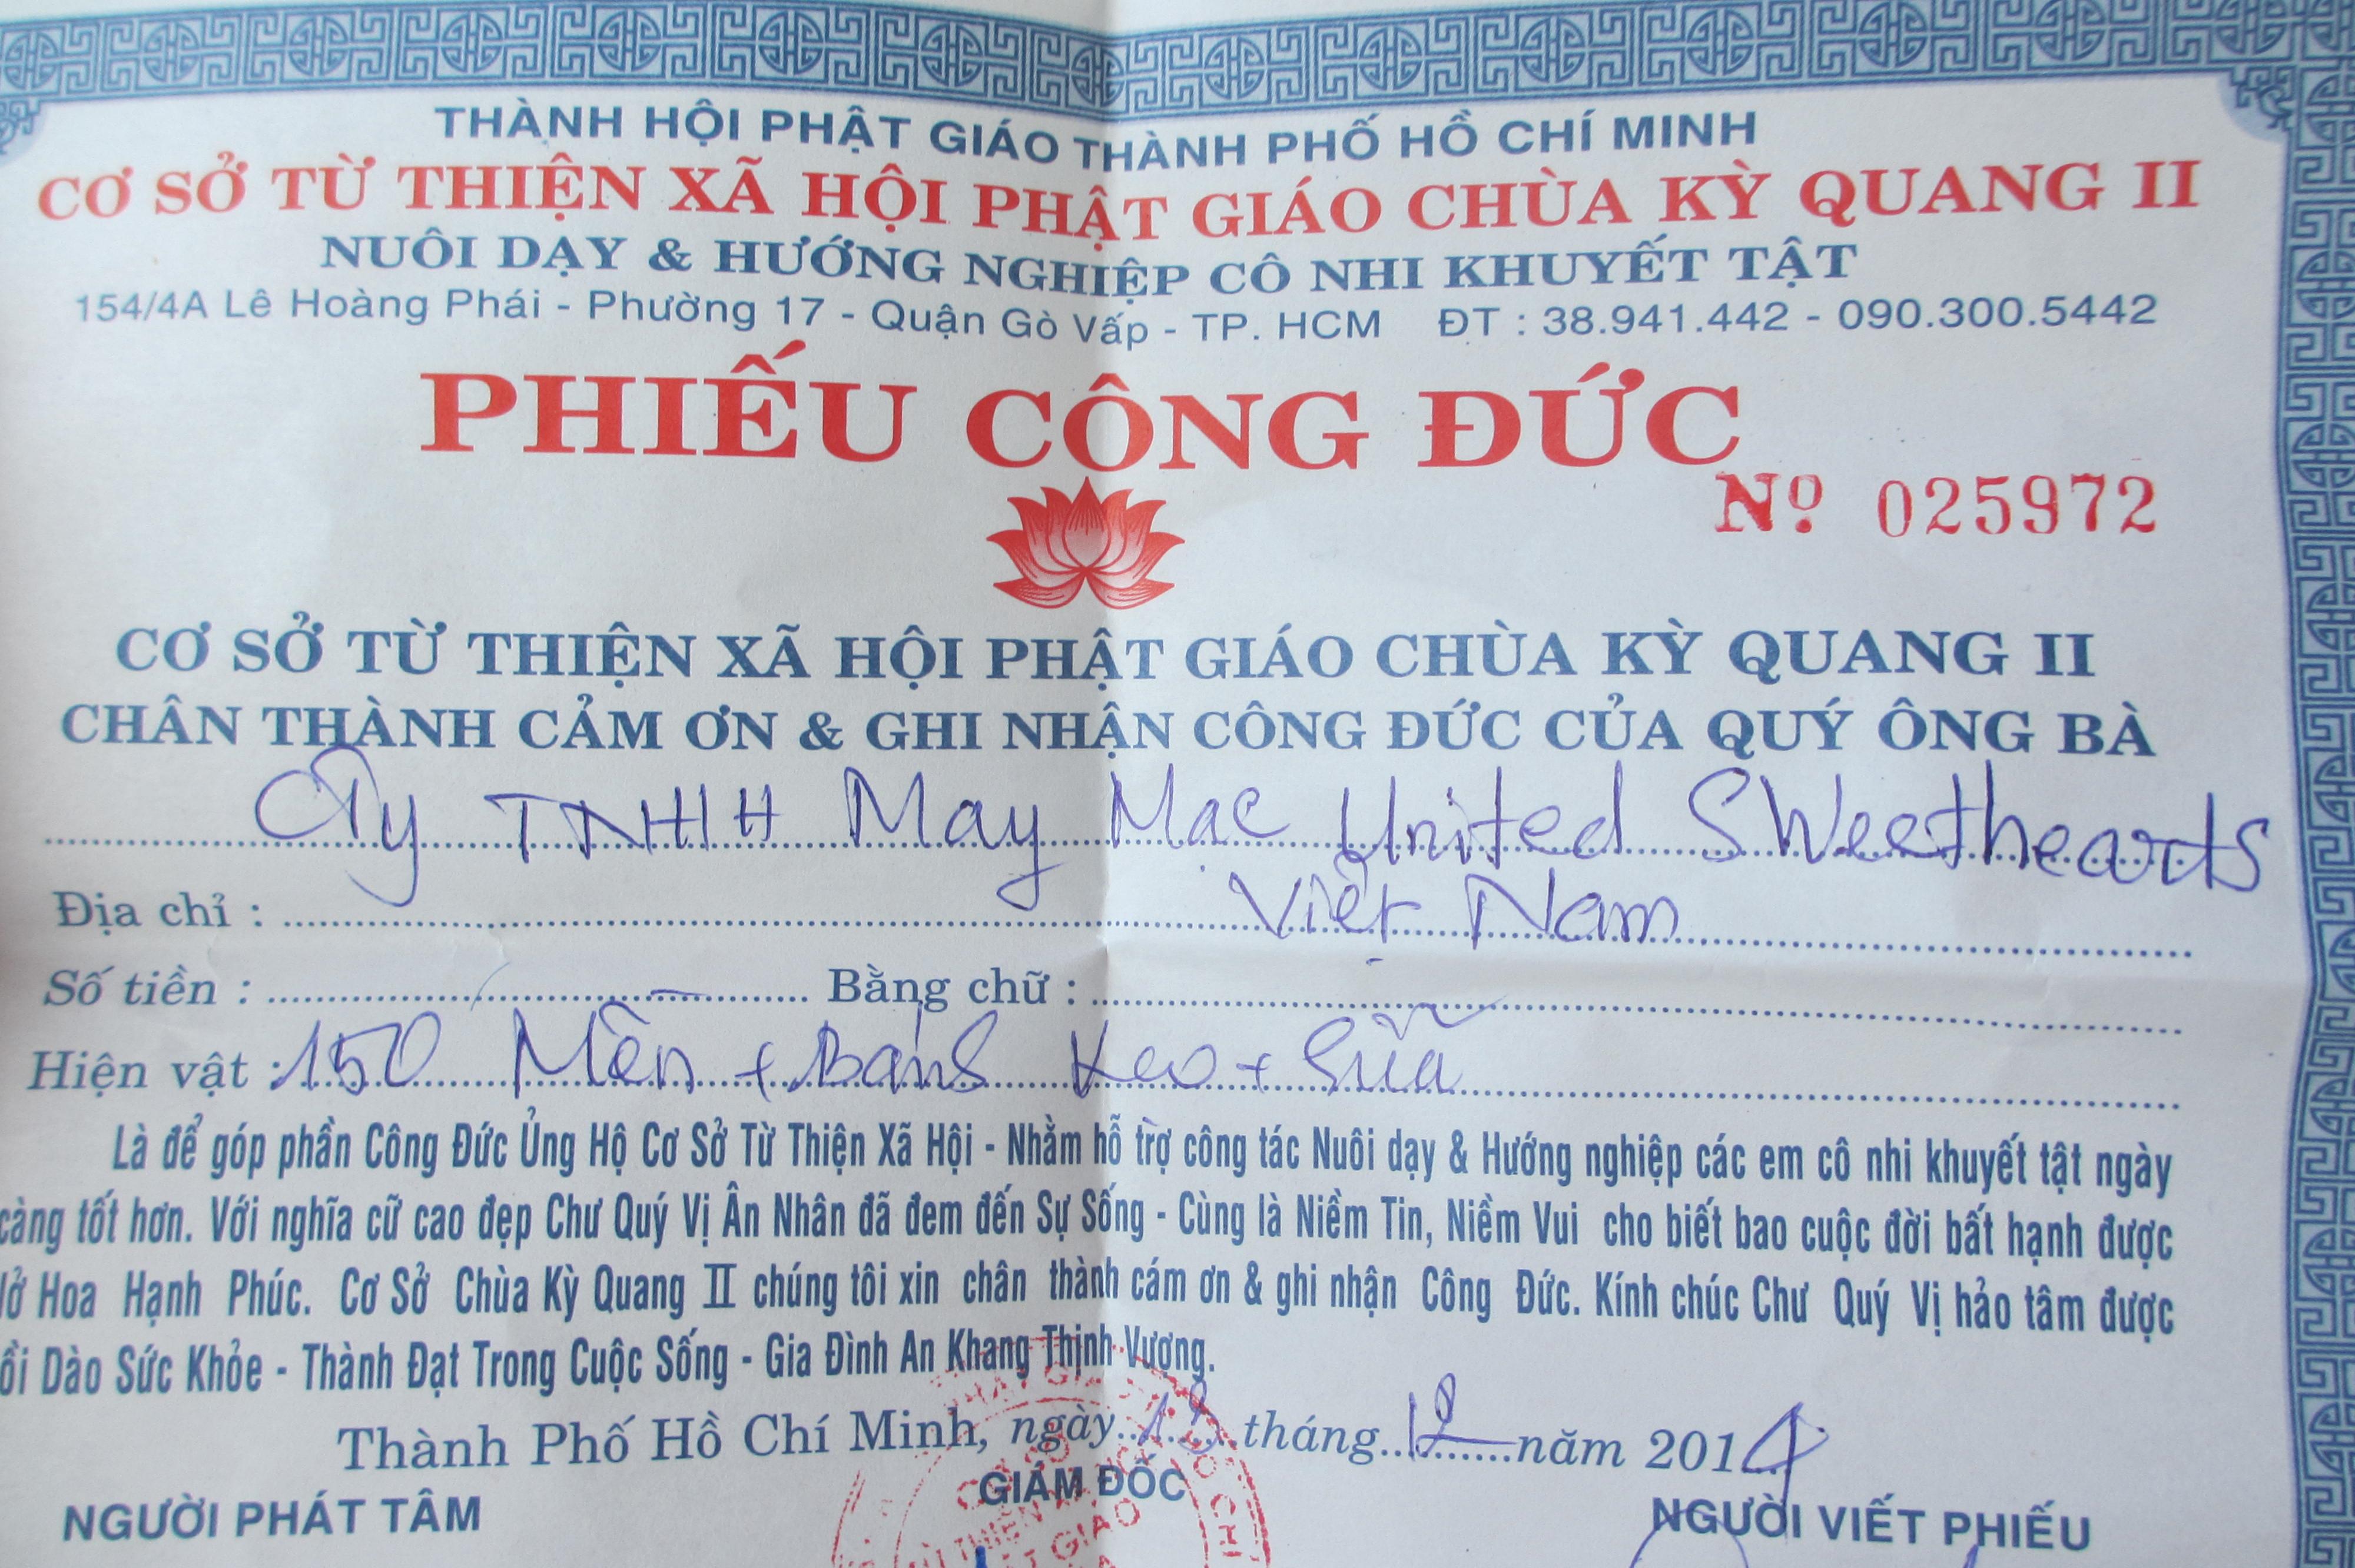 THÀNH HỘI PHẬT GIÁO THÀNH PHỐ HỒ CHÍ MINH
CƠ SỞ TỪ THIỆN XÃ HỘI PHẬT GIÁO CHÙA KỲ QUANG II
NUÔI DẠY & HƯỚNG NGHIỆP CÔ NHI KHUYẾT TẬT
154/4A Lê Hoàng Phái - Phường 17 - Quận Gò Vấp - TP. HCM ĐT : 38.941.442 - 090.300.5442
PHIẾU CÔNG ĐỨC
Nº 025972
CƠ SỞ TỪ THIỆN XÃ HỘI PHẬT GIÁO CHÙA KỲ QUANG II
CHÂN THÀNH CẢM ƠN & GHI NHẬN CÔNG ĐỨC CỦA QUÝ ÔNG BÀ
CTy TNHH May Mạc United SWeethearts
Địa chỉ : Việt Nam
Số tiền : Bằng chữ :
Hiện vật : 150 Mền + Bánh Kẹo + Sữa
Là để góp phần Công Đức Ủng Hộ Cơ Sở Từ Thiện Xã Hội - Nhằm hỗ trợ công tác Nuôi dạy & Hướng nghiệp các em cô nhi khuyết tật ngày
càng tốt hơn. Với nghĩa cữ cao đẹp Chư Quý Vị Ân Nhân đã đem đến Sự Sống - Cùng là Niềm Tin, Niềm Vui cho biết bao cuộc đời bất hạnh được
Nở Hoa Hạnh Phúc. Cơ Sở Chùa Kỳ Quang II chúng tôi xin chân thành cám ơn & ghi nhận Công Đức. Kính chúc Chư Quý Vị hảo tâm được
Dào Sức Khỏe - Thành Đạt Trong Cuộc Sống - Gia Đình An Khang Thịnh Vượng.
Thành Phố Hồ Chí Minh, ngày 13 tháng 12 năm 2014
NGƯỜI PHÁT TÂM GIÁM ĐỐC NGƯỜI VIẾT PHIẾU